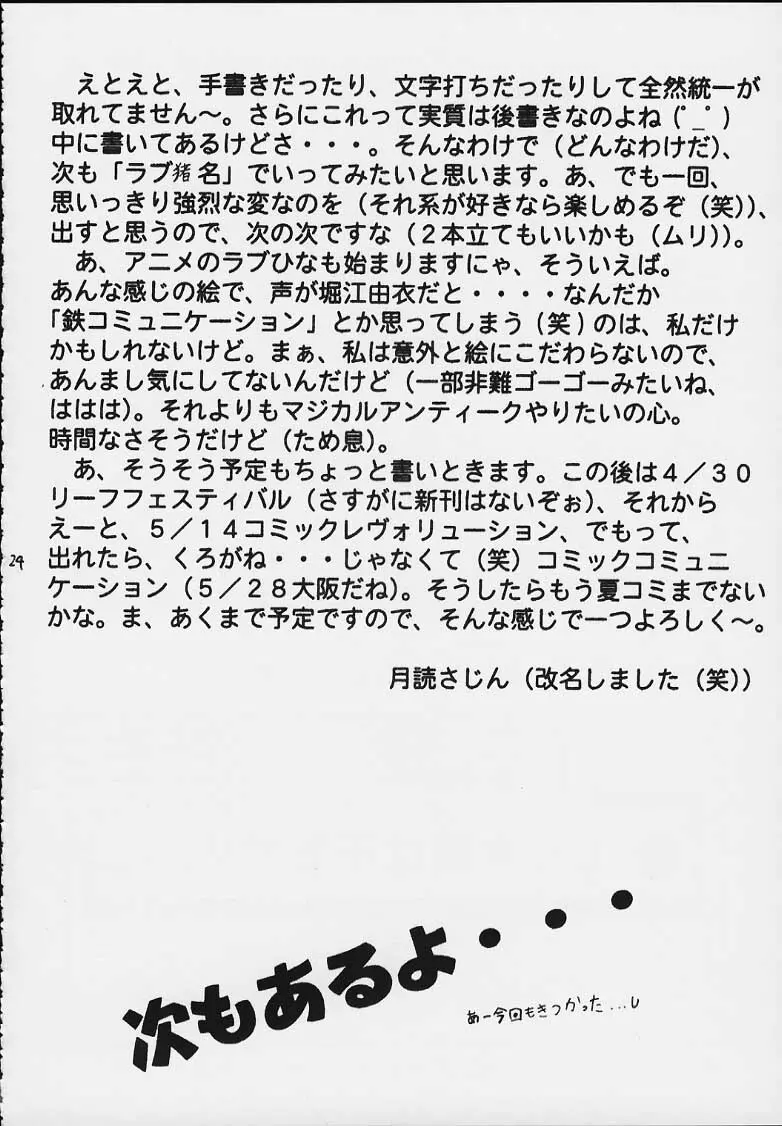 えとえと、手書きだったり、文字打ちだったりして全然統一が
取れてません～。さらにこれって実質は後書きなのよね(ﾟ_ﾟ)
中に書いてあるけどさ・・・。そんなわけで（どんなわけだ）、
次も「ラブ猪名」でいってみたいと思います。あ、でも一回、
思いっきり強烈な変なのを（それ系が好きなら楽しめるぞ（笑））、
出すと思うので、次の次ですな（２本立てもいいかも（ムリ））。
あ、アニメのラブひなも始まりますにゃ、そういえば。
あんな感じの絵で、声が堀江由衣だと・・・・なんだか
「鉄コミュニケーション」とか思ってしまう（笑）のは、私だけ
かもしれないけど。まぁ、私は意外と絵にこだわらないので、
あんまし気にしてないんだけど（一部非難ゴーゴーみたいね、
ははは）。それよりもマジカルアンティークやりたいの心。
時間なさそうだけど（ため息）。
あ、そうそう予定もちょっと書いときます。この後は４／３０
リーフフェスティバル（さすがに新刊はないぞぉ）、それから
えーと、５／１４コミックレヴォリューション、でもって、
出れたら、くろがね・・・じゃなくて（笑）コミックコミュニ
ケーション（５／２８大阪だね）。そうしたらもう夏コミまでない
かな。ま、あくまで予定ですので、そんな感じで一つよろしく～。
月読さじん（改名しました（笑））
24
次もあるよ・・・
あー今回もきつかった...し